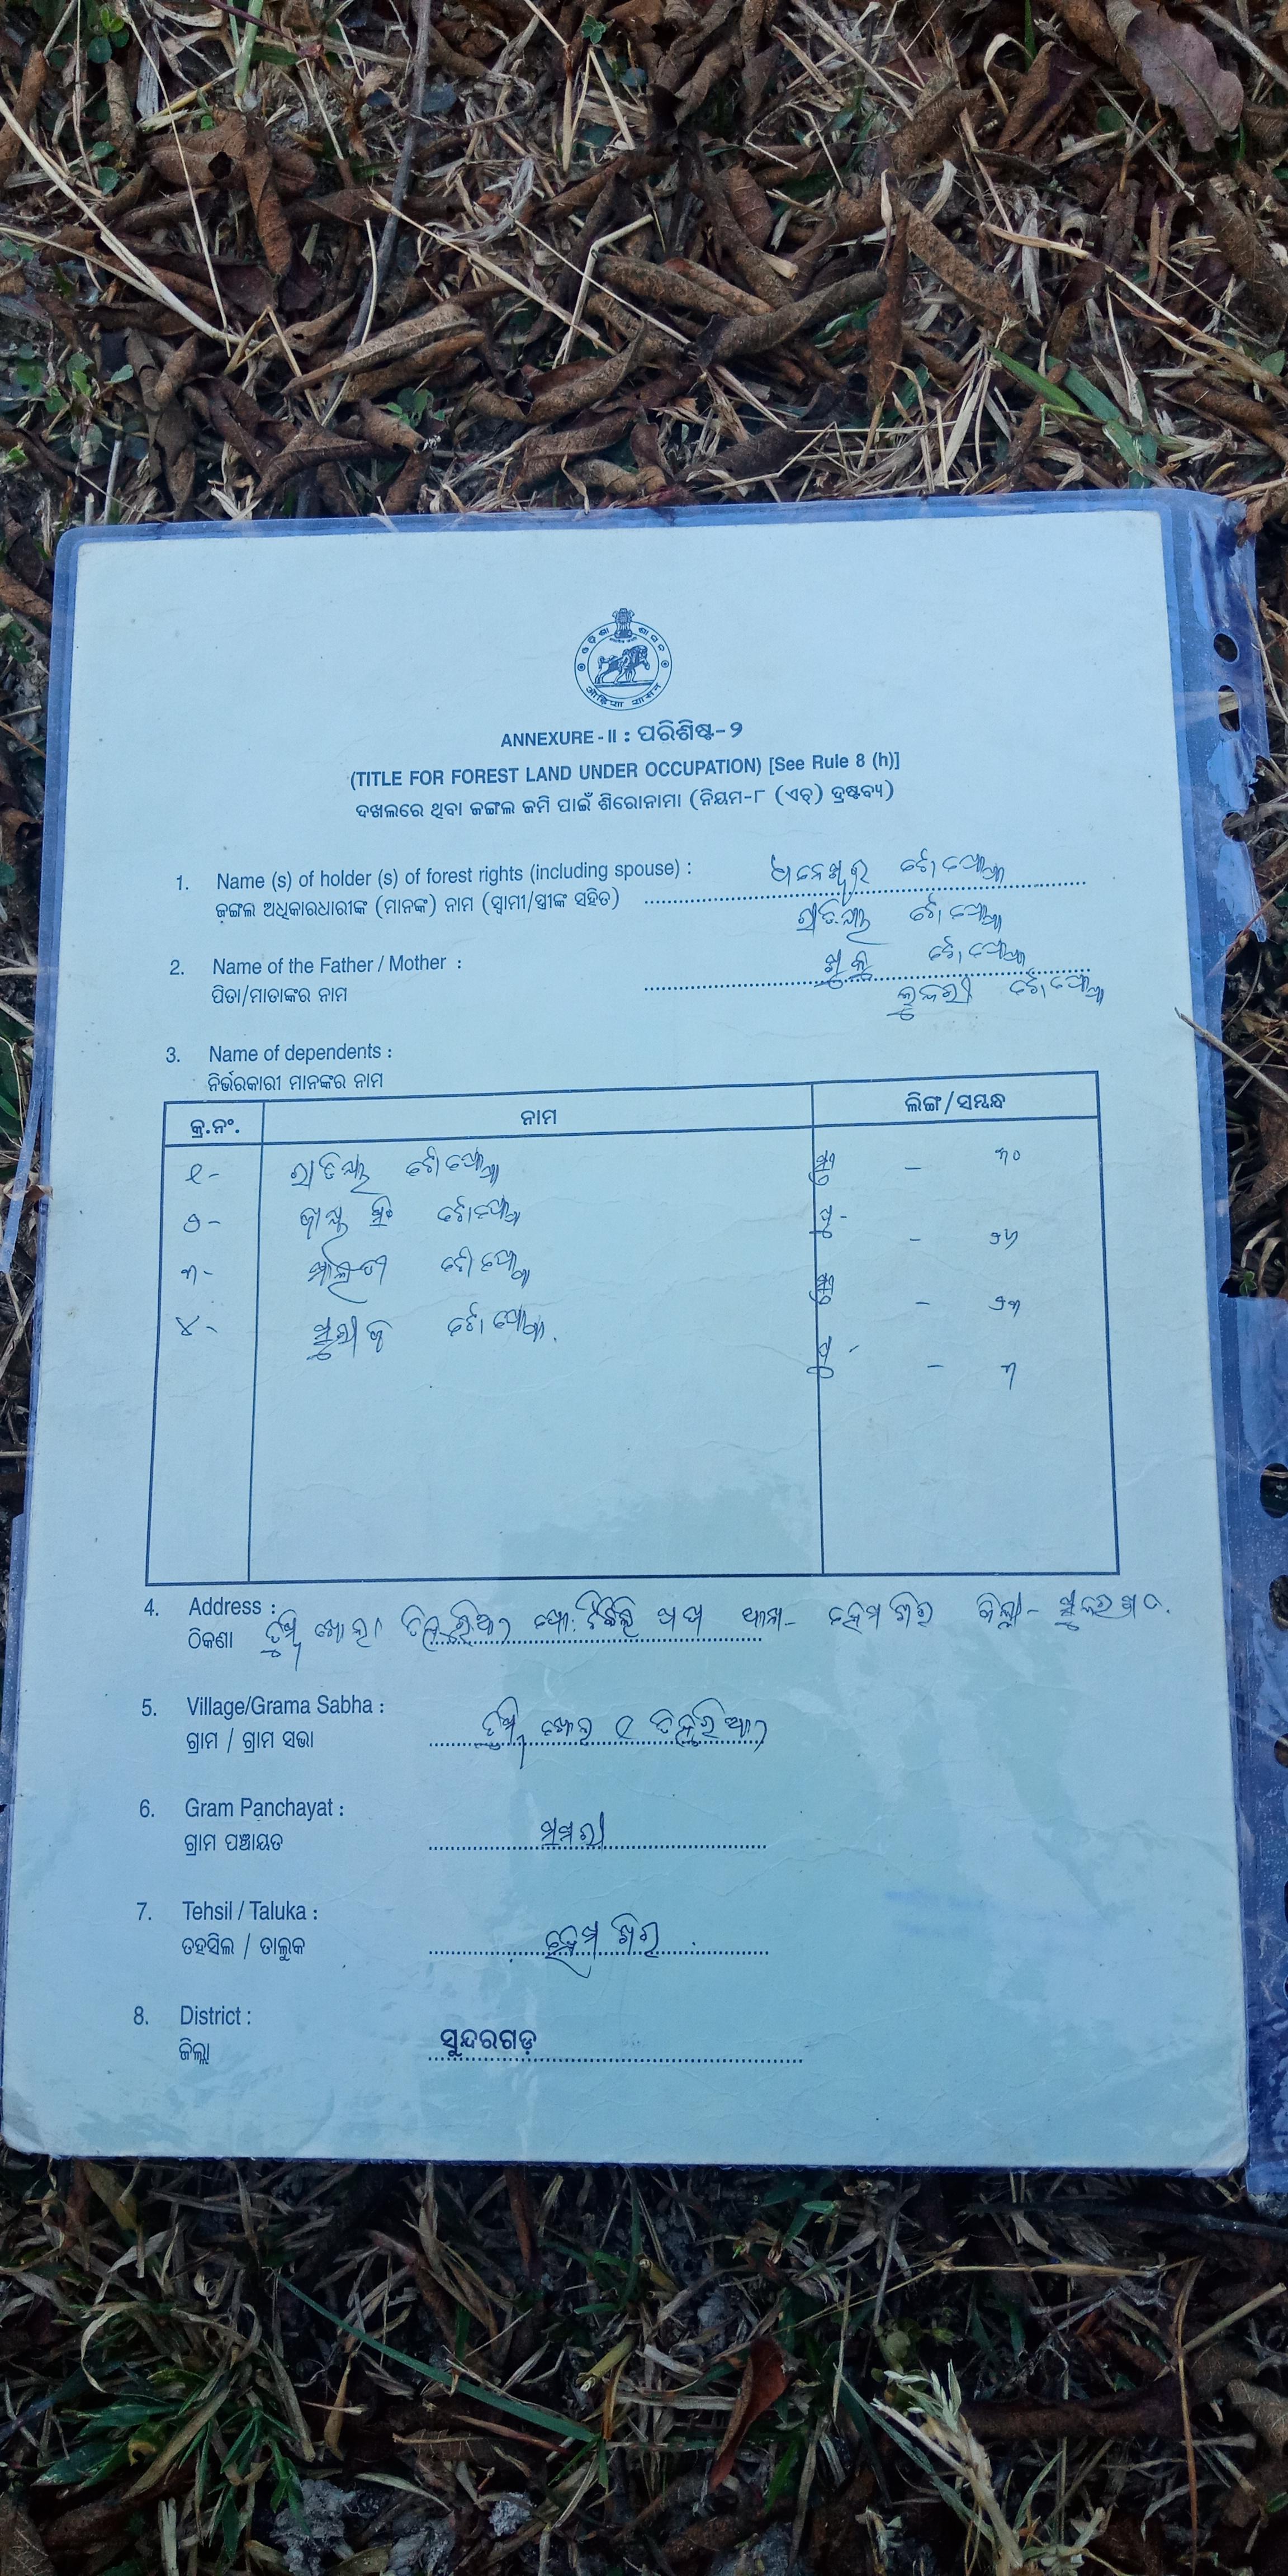 ଓଡ଼ିଶା ଶାସନ
ओड़िशा शासन
ANNEXURE - II : ପରିଶିଷ୍ଟ-୨
(TITLE FOR FOREST LAND UNDER OCCUPATION) [See Rule 8 (h)]
ଦଖଲରେ ଥିବା ଜଙ୍ଗଲ ଜମି ପାଇଁ ଶିରୋନାମା (ନିୟମ-୮ (ଏଚ୍) ଦ୍ରଷ୍ଟବ୍ୟ)
1. Name (s) of holder (s) of forest rights (including spouse) : ଧନେଶ୍ୱର ଟୋପୋ
ଜଙ୍ଗଲ ଅଧିକାରଧାରୀଙ୍କ (ମାନଙ୍କ) ନାମ (ସ୍ୱାମୀ/ସ୍ତ୍ରୀଙ୍କ ସହିତ)
ଟୋପୋ
2. Name of the Father / Mother : ଟୋପୋ
ପିତା/ମାତାଙ୍କର ନାମ ଟୋପୋ
3. Name of dependents :
ନିର୍ଭରକାରୀ ମାନଙ୍କର ନାମ
କ୍ର.ନଂ. ନାମ ଲିଙ୍ଗ/ସମ୍ବନ୍ଧ
୧- ଟୋପୋ ସ୍ତ୍ରୀ - ୩୦
୨- ଟୋପୋ ପୁ - ୨୬
୩- ମାଲତୀ ଟୋପୋ ସ୍ତ୍ରୀ - ୨୩
୪- ସୁରୀଜ ଟୋପୋ ପୁ - ୩
4. Address :
ଠିକଣା ହେମଗିର ଜିଲ୍ଲା- ସୁନ୍ଦରଗଡ.
5. Village/Grama Sabha :
ଗ୍ରାମ / ଗ୍ରାମ ସଭା
6. Gram Panchayat :
ଗ୍ରାମ ପଞ୍ଚାୟତ
7. Tehsil / Taluka :
ତହସିଲ / ତାଲୁକ ହେମଗିର
8. District :
ଜିଲ୍ଲା ସୁନ୍ଦରଗଡ଼